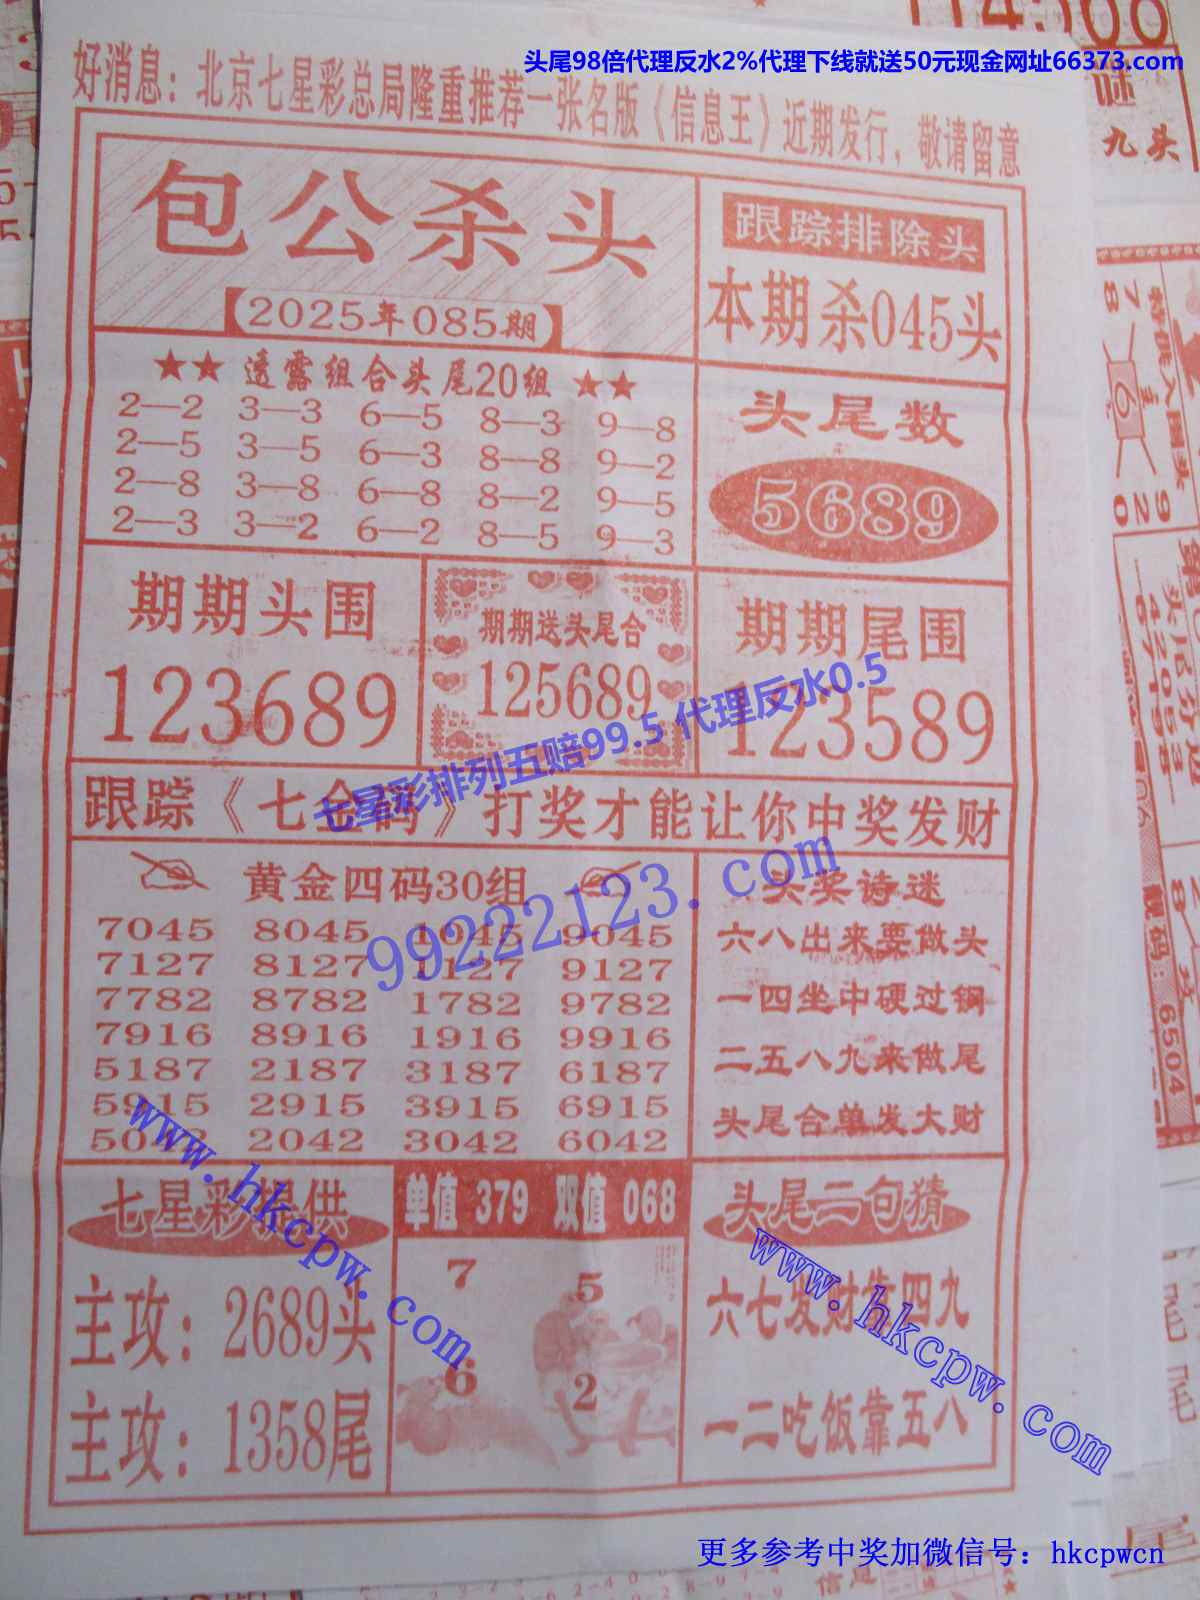 头尾98倍代理反水2%代理下线就送50元现金网址66373.com
好消息：北京七星彩总局隆重推荐一张名版《信息王》近期发行，敬请留意
包公杀头
【2025年085期】
跟踪排除头
本期杀045头
★★ 透露组合头尾20组 ★★
2—2 3—3 6—5 8—3 9—8
2—5 3—5 6—3 8—8 9—2
2—8 3—8 6—8 8—2 9—5
2—3 3—2 6—2 8—5 9—3
头尾数
5689
期期头围
123689
期期送头尾合
125689
期期尾围
123589
七星彩排列五赔99.5 代理反水0.5
跟踪《七金码》打奖才能让你中奖发财
99222123.com
黄金四码30组
7045 8045 1045 9045
7127 8127 1127 9127
7782 8782 1782 9782
7916 8916 1916 9916
5187 2187 3187 6187
5915 2915 3915 6915
5042 2042 3042 6042
头奖诗迷
六八出来要做头
一四坐中硬过钢
二五八九来做尾
头尾合单发大财
www.hkcpw.com
七星彩提供
主攻：2689头
主攻：1358尾
单值 379 双值 068
7 5
6 2
头尾二句猜
六七发财靠四九
一二吃饭靠五八
www.hkcpw.com
更多参考中奖加微信号：hkcpwcn
九头
舰码：6504
信息